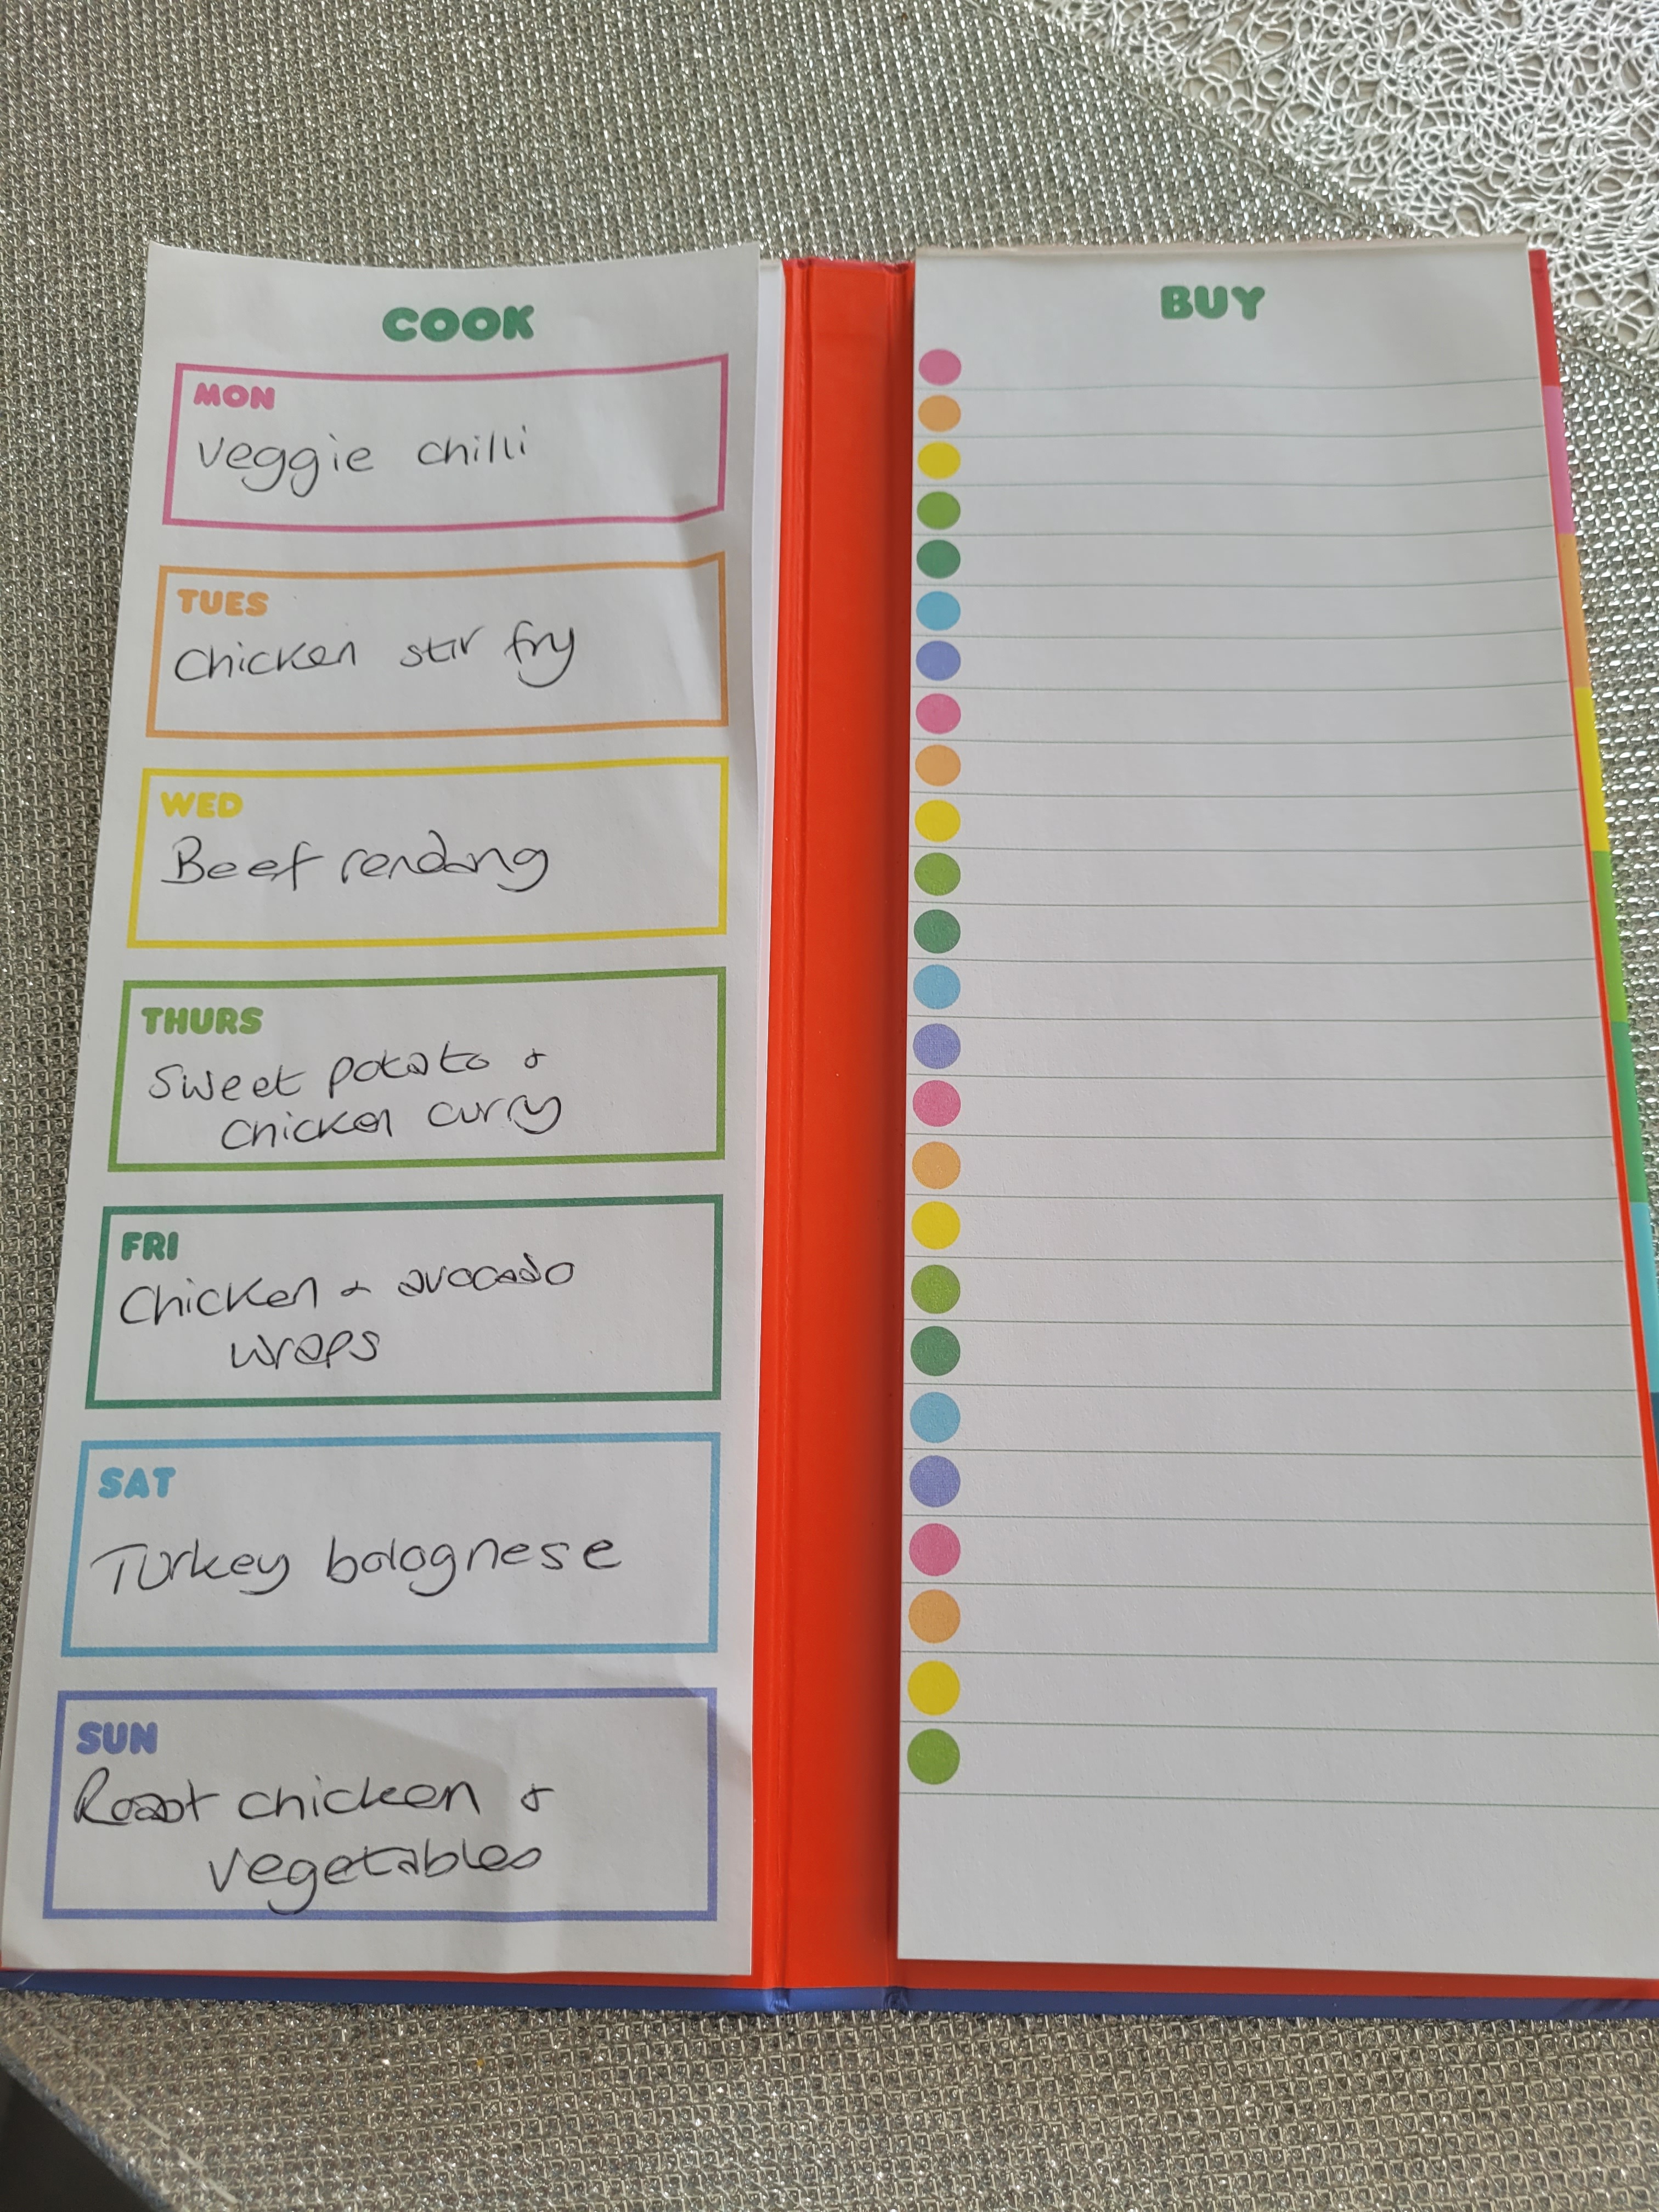 COOK
MON
veggie chilli
TUES
Chicken stir fry
WED
Beef rendang
THURS
Sweet potato &
chicken curry
FRI
Chicken & avocado
wraps
SAT
Turkey bolognese
SUN
Roast chicken &
vegetables
BUY